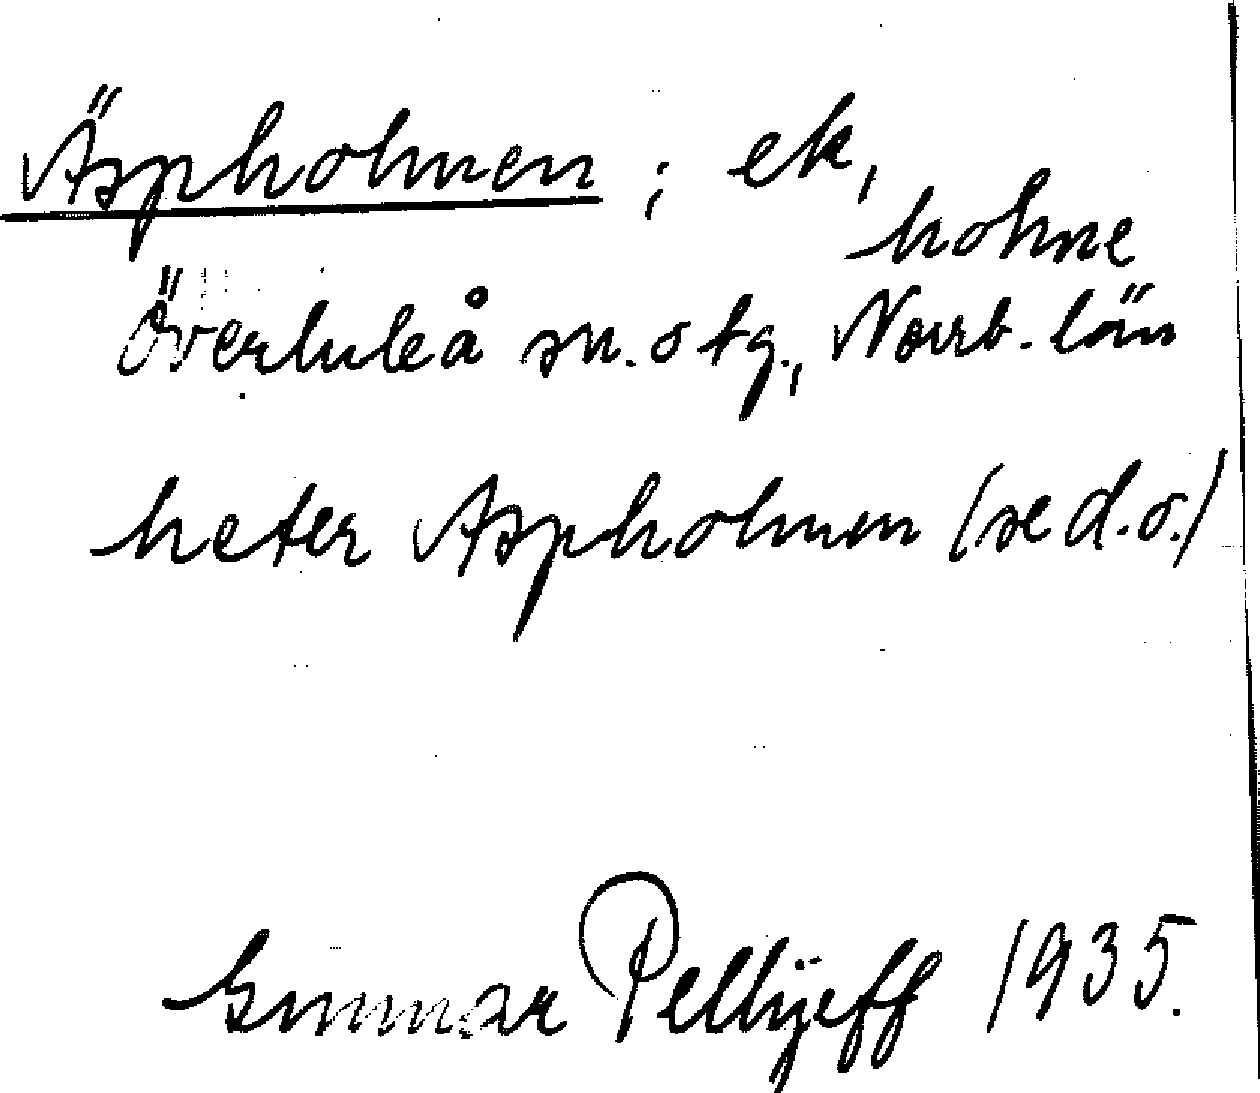 Äspholmen; ek, holme
Överluleå sn. o tg., Norrb. län
heter Aspholmen (se d.o.)
Gunnar Pellijeff 1935.